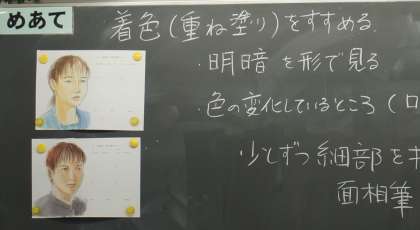 めあて
着色(重ね塗り)をすすめる
・明暗を形で見る
・色の変化しているところ(ロ
少しずつ細部をキ
面相筆